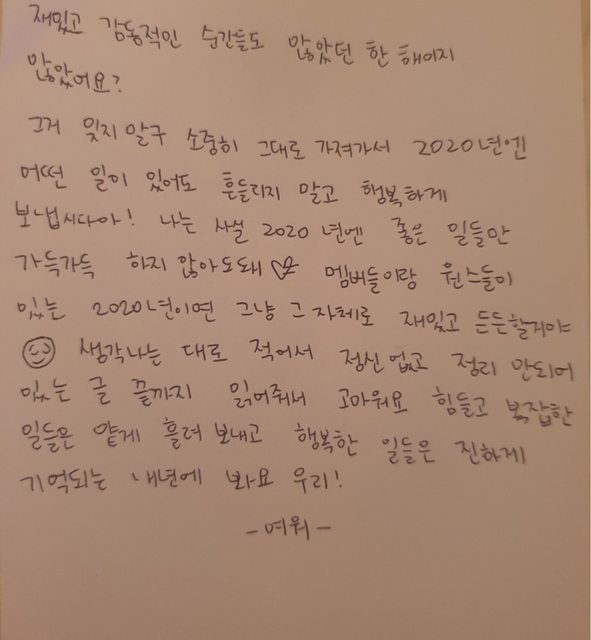 재밌고 감동적인 순간들도 많았던 한 해이지
않았어요?
그거 잊지말구 소중히 그대로 가져가서 2020년엔
어떤 일이 있어도 흔들리지 말고 행복하게
보냅시다아! 나는 사실 2020년엔 좋은 일들만
가득가득 하지 않아도돼 멤버들이랑 원스들이
있는 2020년이면 그냥 그 자체로 재밌고 든든할거야
생각나는 대로 적어서 정신 없고 정리 안되어
있는 글 끝까지 읽어줘서 고마워요 힘들고 복잡한
일들은 얕게 흘려 보내고 행복한 일들은 진하게
기억되는 내년에 봐요 우리!